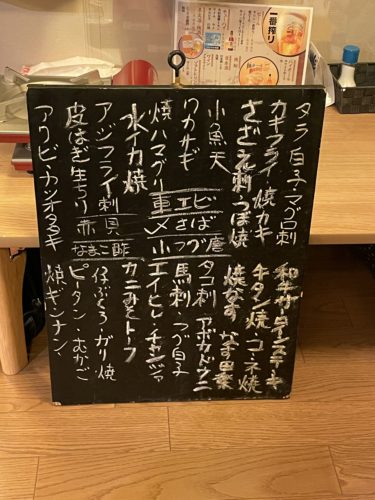 一番搾り
タラ白子マグロ刺
カキフライ焼カキ
さざえ刺つぼ焼
小魚天
ワカサギ
焼ハマグリ
水イカ焼
アジフライ刺
皮はぎ生ちり
アワビ・カンオタタキ
車エビ
〆さば
小つづ唐
赤貝
なまこ酢
和牛サーロインステーキ
牛タン焼コーネ焼
焼なす なす田楽
タコ刺 アボカドウニ
馬刺・つが白子
エイヒレ・チャンジャ
カニみそトーフ
仔ぶくろ・ガリ焼
ピータン・むかご
焼ギンナン、